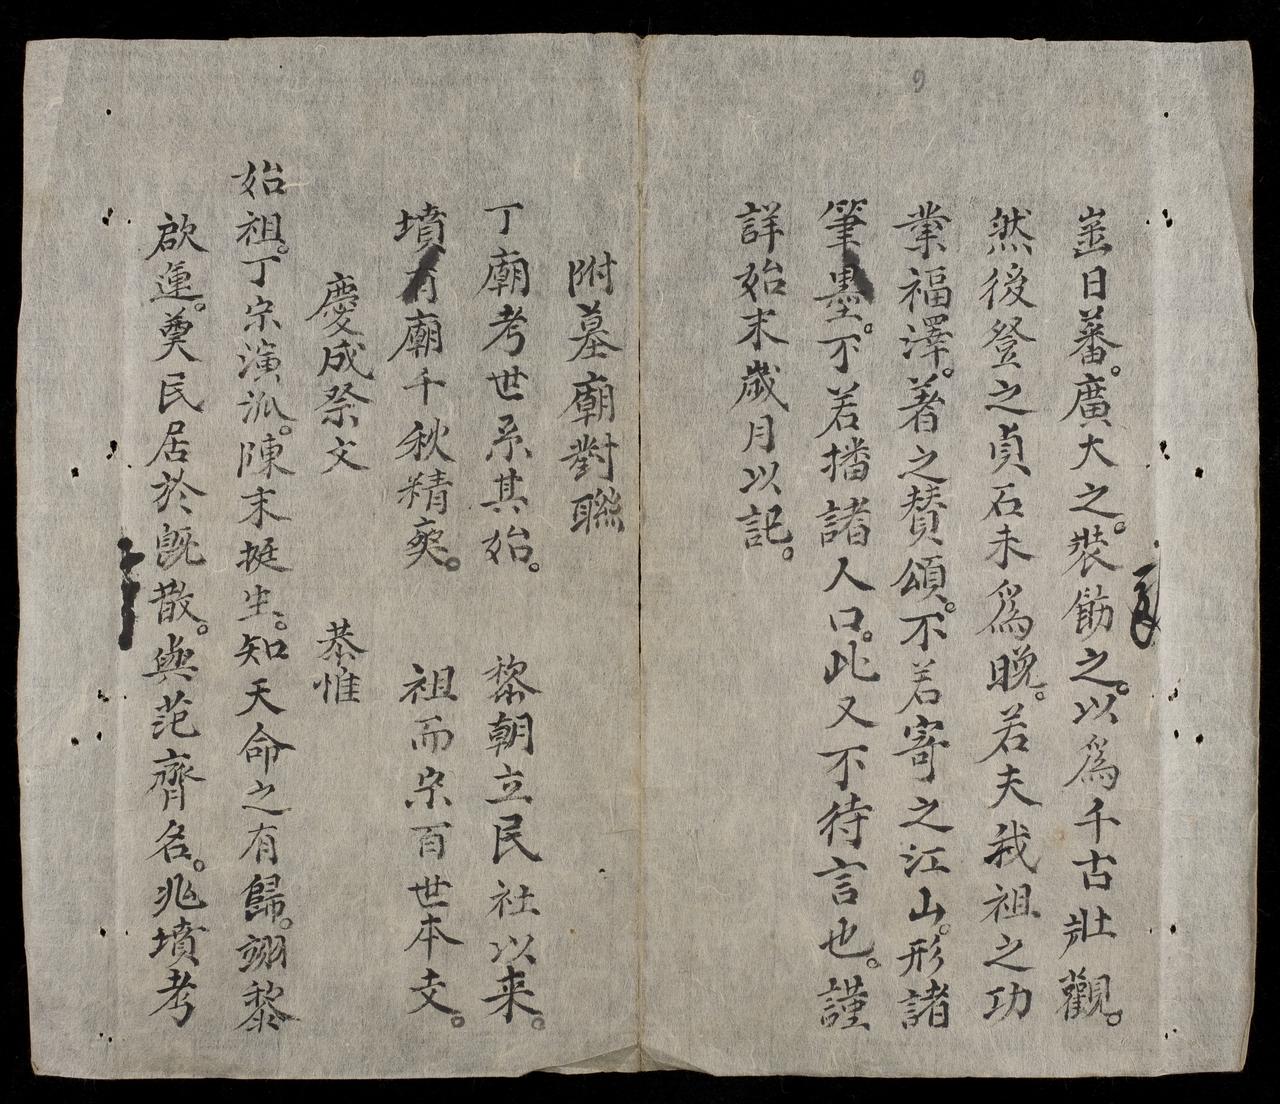 9
日蕃。廣大之。裝飭之。以爲千古壯觀。
然後登之貞石未爲晚。若夫我祖之功
業福澤。著之賛頌。不若寄之江山。形諸
筆墨。不若播諸人口。此又不待言也。謹
詳始末歲月以記。
附墓廟對聯
丁廟考世系其始。 黎朝立民社以来。
墳有廟千秋精爽。 祖而宗百世本支。
慶成祭文 恭惟
始祖。丁宗演派。陳末挺生。知天命之有歸。翊黎
啟運。奠民居於既散。與范齊名。兆墳考